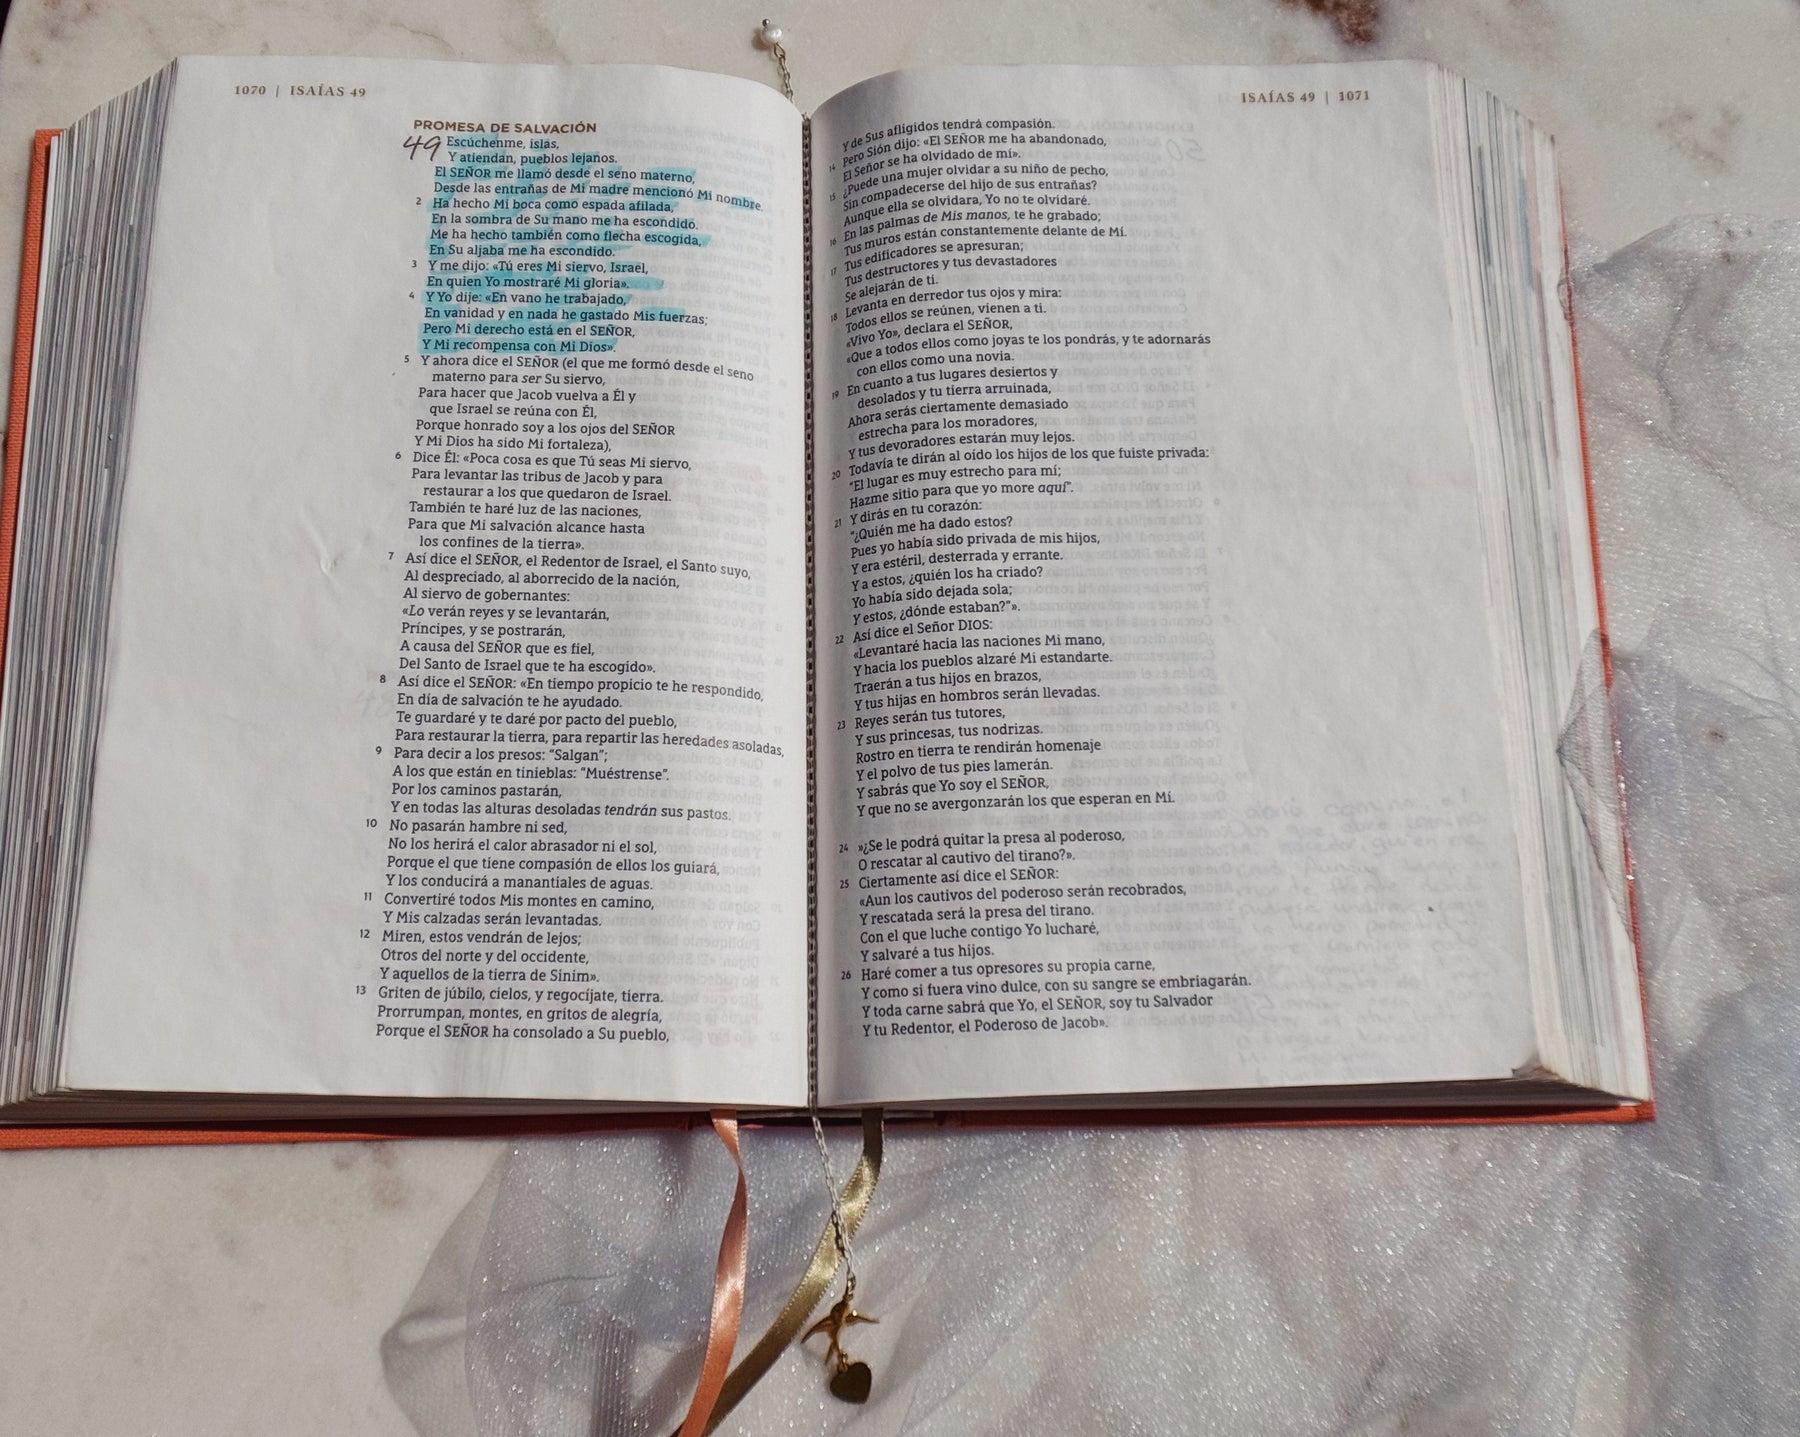 1070 | ISAÍAS 49
PROMESA DE SALVACIÓN
49 Escúchenme, islas,
Y atiendan, pueblos lejanos.
El SEÑOR me llamó desde el seno materno,
Desde las entrañas de Mi madre mencionó Mi nombre.
2 Ha hecho Mi boca como espada afilada,
En la sombra de Su mano me ha escondido.
Me ha hecho también como flecha escogida,
En Su aljaba me ha escondido.
3 Y me dijo: «Tú eres Mi siervo, Israel,
En quien Yo mostraré Mi gloria».
4 Y Yo dije: «En vano he trabajado,
En vanidad y en nada he gastado Mis fuerzas;
Pero Mi derecho está en el SEÑOR,
Y Mi recompensa con Mi Dios».
5 Y ahora dice el SEÑOR (el que me formó desde el seno
materno para ser Su siervo,
Para hacer que Jacob vuelva a Él y
que Israel se reúna con Él,
Porque honrado soy a los ojos del SEÑOR
Y Mi Dios ha sido Mi fortaleza),
6 Dice Él: «Poca cosa es que Tú seas Mi siervo,
Para levantar las tribus de Jacob y para
restaurar a los que quedaron de Israel.
También te haré luz de las naciones,
Para que Mi salvación alcance hasta
los confines de la tierra».
7 Así dice el SEÑOR, el Redentor de Israel, el Santo suyo,
Al despreciado, al aborrecido de la nación,
Al siervo de gobernantes:
«Lo verán reyes y se levantarán,
Príncipes, y se postrarán,
A causa del SEÑOR que es fiel,
Del Santo de Israel que te ha escogido».
8 Así dice el SEÑOR: «En tiempo propicio te he respondido,
En día de salvación te he ayudado.
Te guardaré y te daré por pacto del pueblo,
Para restaurar la tierra, para repartir las heredades asoladas,
9 Para decir a los presos: “Salgan”;
A los que están en tinieblas: “Muéstrense”.
Por los caminos pastarán,
Y en todas las alturas desoladas tendrán sus pastos.
10 No pasarán hambre ni sed,
No los herirá el calor abrasador ni el sol,
Porque el que tiene compasión de ellos los guiará,
Y los conducirá a manantiales de aguas.
11 Convertiré todos Mis montes en camino,
Y Mis calzadas serán levantadas.
12 Miren, estos vendrán de lejos;
Otros del norte y del occidente,
Y aquellos de la tierra de Sinim».
13 Griten de júbilo, cielos, y regocíjate, tierra.
Prorrumpan, montes, en gritos de alegría,
Porque el SEÑOR ha consolado a Su pueblo,
ISAÍAS 49 | 1071
Y de Sus afligidos tendrá compasión.
14 Pero Sión dijo: «El SEÑOR me ha abandonado,
El Señor se ha olvidado de mí».
15 ¿Puede una mujer olvidar a su niño de pecho,
Sin compadecerse del hijo de sus entrañas?
Aunque ella se olvidara, Yo no te olvidaré.
16 En las palmas de Mis manos, te he grabado;
Tus muros están constantemente delante de Mí.
17 Tus edificadores se apresuran;
Tus destructores y tus devastadores
Se alejarán de ti.
18 Levanta en derredor tus ojos y mira:
Todos ellos se reúnen, vienen a ti.
«Vivo Yo», declara el SEÑOR,
«Que a todos ellos como joyas te los pondrás, y te adornarás
con ellos como una novia.
19 En cuanto a tus lugares desiertos y
desolados y tu tierra arruinada,
Ahora serás ciertamente demasiado
estrecha para los moradores,
Y tus devoradores estarán muy lejos.
20 Todavía te dirán al oído los hijos de los que fuiste privada:
“El lugar es muy estrecho para mí;
Hazme sitio para que yo more aquí”.
21 Y dirás en tu corazón:
“¿Quién me ha dado estos?
Pues yo había sido privada de mis hijos,
Y era estéril, desterrada y errante.
Y a estos, ¿quién los ha criado?
Yo había sido dejada sola;
Y estos, ¿dónde estaban?”».
22 Así dice el Señor DIOS:
«Levantaré hacia las naciones Mi mano,
Y hacia los pueblos alzaré Mi estandarte.
Traerán a tus hijos en brazos,
Y tus hijas en hombros serán llevadas.
23 Reyes serán tus tutores,
Y sus princesas, tus nodrizas.
Rostro en tierra te rendirán homenaje
Y el polvo de tus pies lamerán.
Y sabrás que Yo soy el SEÑOR,
Y que no se avergonzarán los que esperan en Mí.
24 »¿Se le podrá quitar la presa al poderoso,
O rescatar al cautivo del tirano?».
25 Ciertamente así dice el SEÑOR:
«Aun los cautivos del poderoso serán recobrados,
Y rescatada será la presa del tirano.
Con el que luche contigo Yo lucharé,
Y salvaré a tus hijos.
26 Haré comer a tus opresores su propia carne,
Y como si fuera vino dulce, con su sangre se embriagarán.
Y toda carne sabrá que Yo, el SEÑOR, soy tu Salvador
Y tu Redentor, el Poderoso de Jacob».